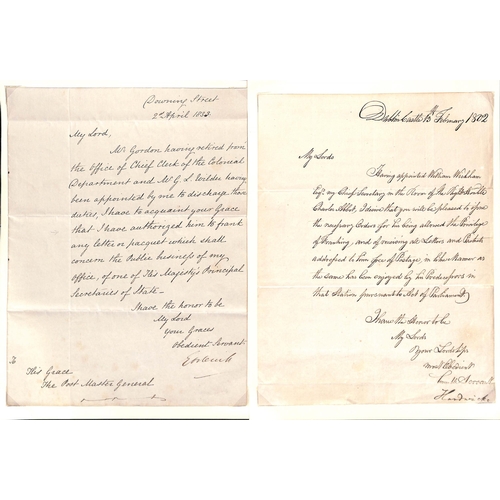 Downing Street
2d April 1833.
My Lord,
Mr Gordon having retired from
the Office of Chief Clerk of the Colonial
Department and Mr G. L. Wilder having
been appointed by me to discharge those
duties, I have to acquaint your Grace
that I have authorized him to frank
any letter or pacquet which shall
concern the Public business of my
office, of one of His Majesty's Principal
Secretaries of State—
I have the honor to be
My Lord
Your Graces
Obedient Servant
To
His Grace
The Post Master General
Dublin Castle 15th February 1802
My Lords
Having appointed William Wickham
Esqr. my Chief Secretary in the Room of the Right Honble
Charles Abbot, I desire that you will be pleased to give
the necessary Orders for his being allowed the Privilege
of Franking, and of receiving all Letters and Packets
addressed to him free of Postage, in like Manner as
the same has been enjoyed by his Predecessors in
that Station pursuant to Act of Parliament
I have the Honor to be
My Lords
Your Lordships
most Obedient
Hardwicke